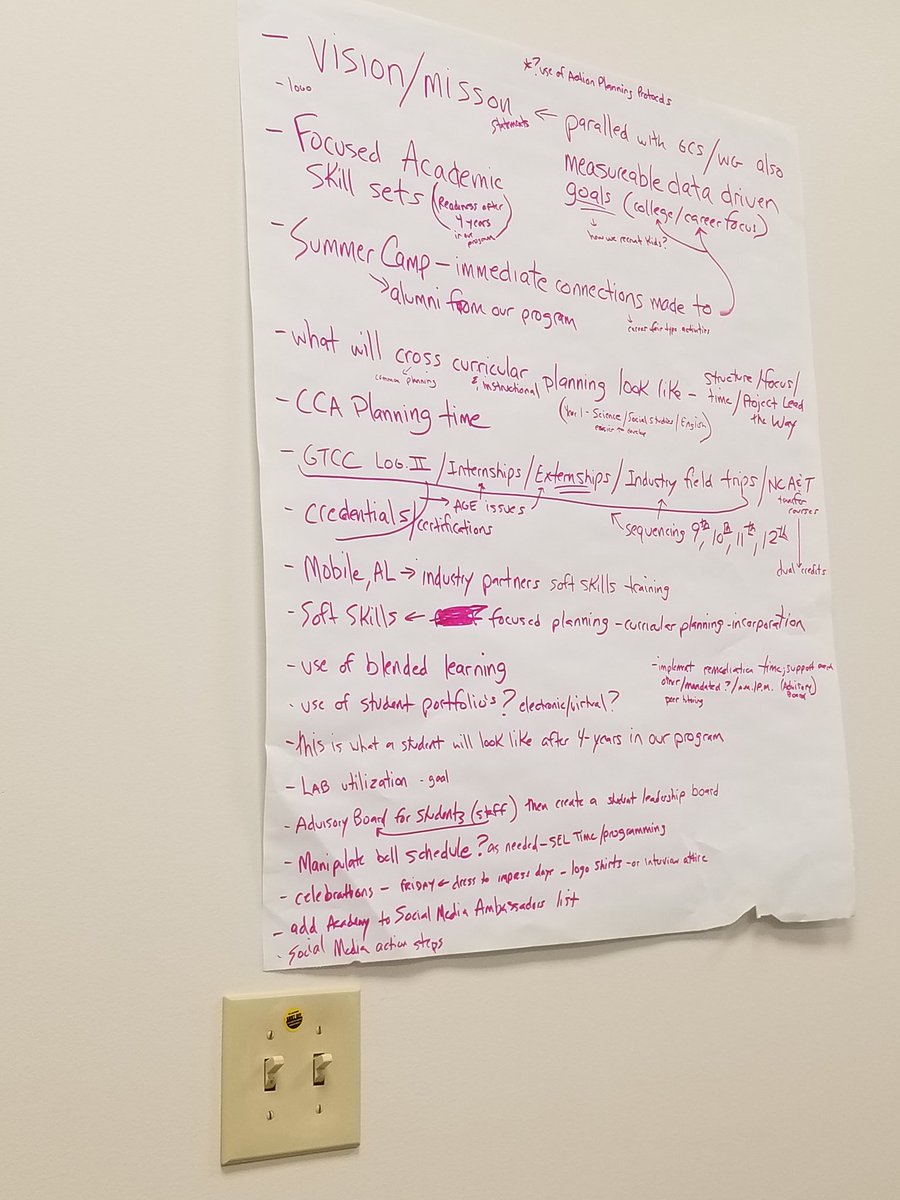 *? use of Action Planning Protocols
- Vision/misson statements ← paralled with GCS/WG also
- logo
measureable data driven
goals (college/career focus)
↓ how we recruit kids?
- Focused Academic
skill sets (Readiness after
4 years
in our
program)
- Summer Camp - immediate connections made to
→ alumni from our program
↓ career fair type activities
- what will cross curricular planning look like - structure/focus/
common planning
& instructional
time/Project Lead
the Way
(Year 1 - Science/Social studies/English
easier to envolve)
- CCA Planning time
- GTCC LOG. II /Internships/Externships/Industry field trips/NCA&T
transfer
courses
→ AGE issues
- credentials/certifications
sequencing 9th, 10th, 11th, 12th
dual credits
- Mobile, AL → industry partners soft skills training
- Soft Skills ← focused planning - curricular planning - incorporation
- use of blended learning
- implement remediation time; support each
other/mandated?/a.m./P.M. (Advisory)
Board
peer tutoring
- use of student portfolio's? electronic/virtual?
- this is what a student will look like after 4-years in our program
- LAB utilization - goal
- Advisory Board for students (staff) then create a student leadership board
- Manipulate bell schedule? as needed - SEL Time/programming
- celebrations - FRIDAY ← dress to impress days - logo shirts - or interview attire
- add Academy to Social Media Ambassadors list
- Social Media action steps